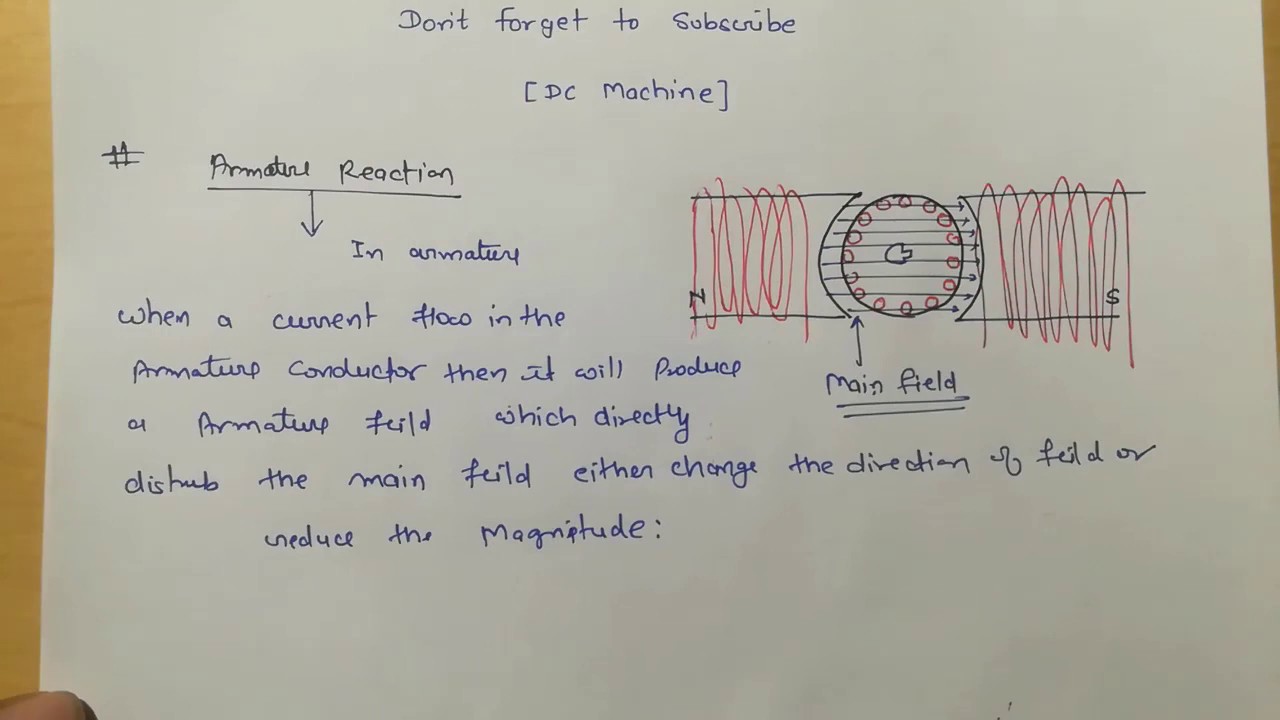 Don't forget to Subscribe
[DC Machine]
# Armature Reaction
In armature
When a current flow in the
Armature Conductor then it will Produce
a Armature feild which directly
distrub the main feild either change the direction of feild or
reduce the Magnitude:
N
S
Main field